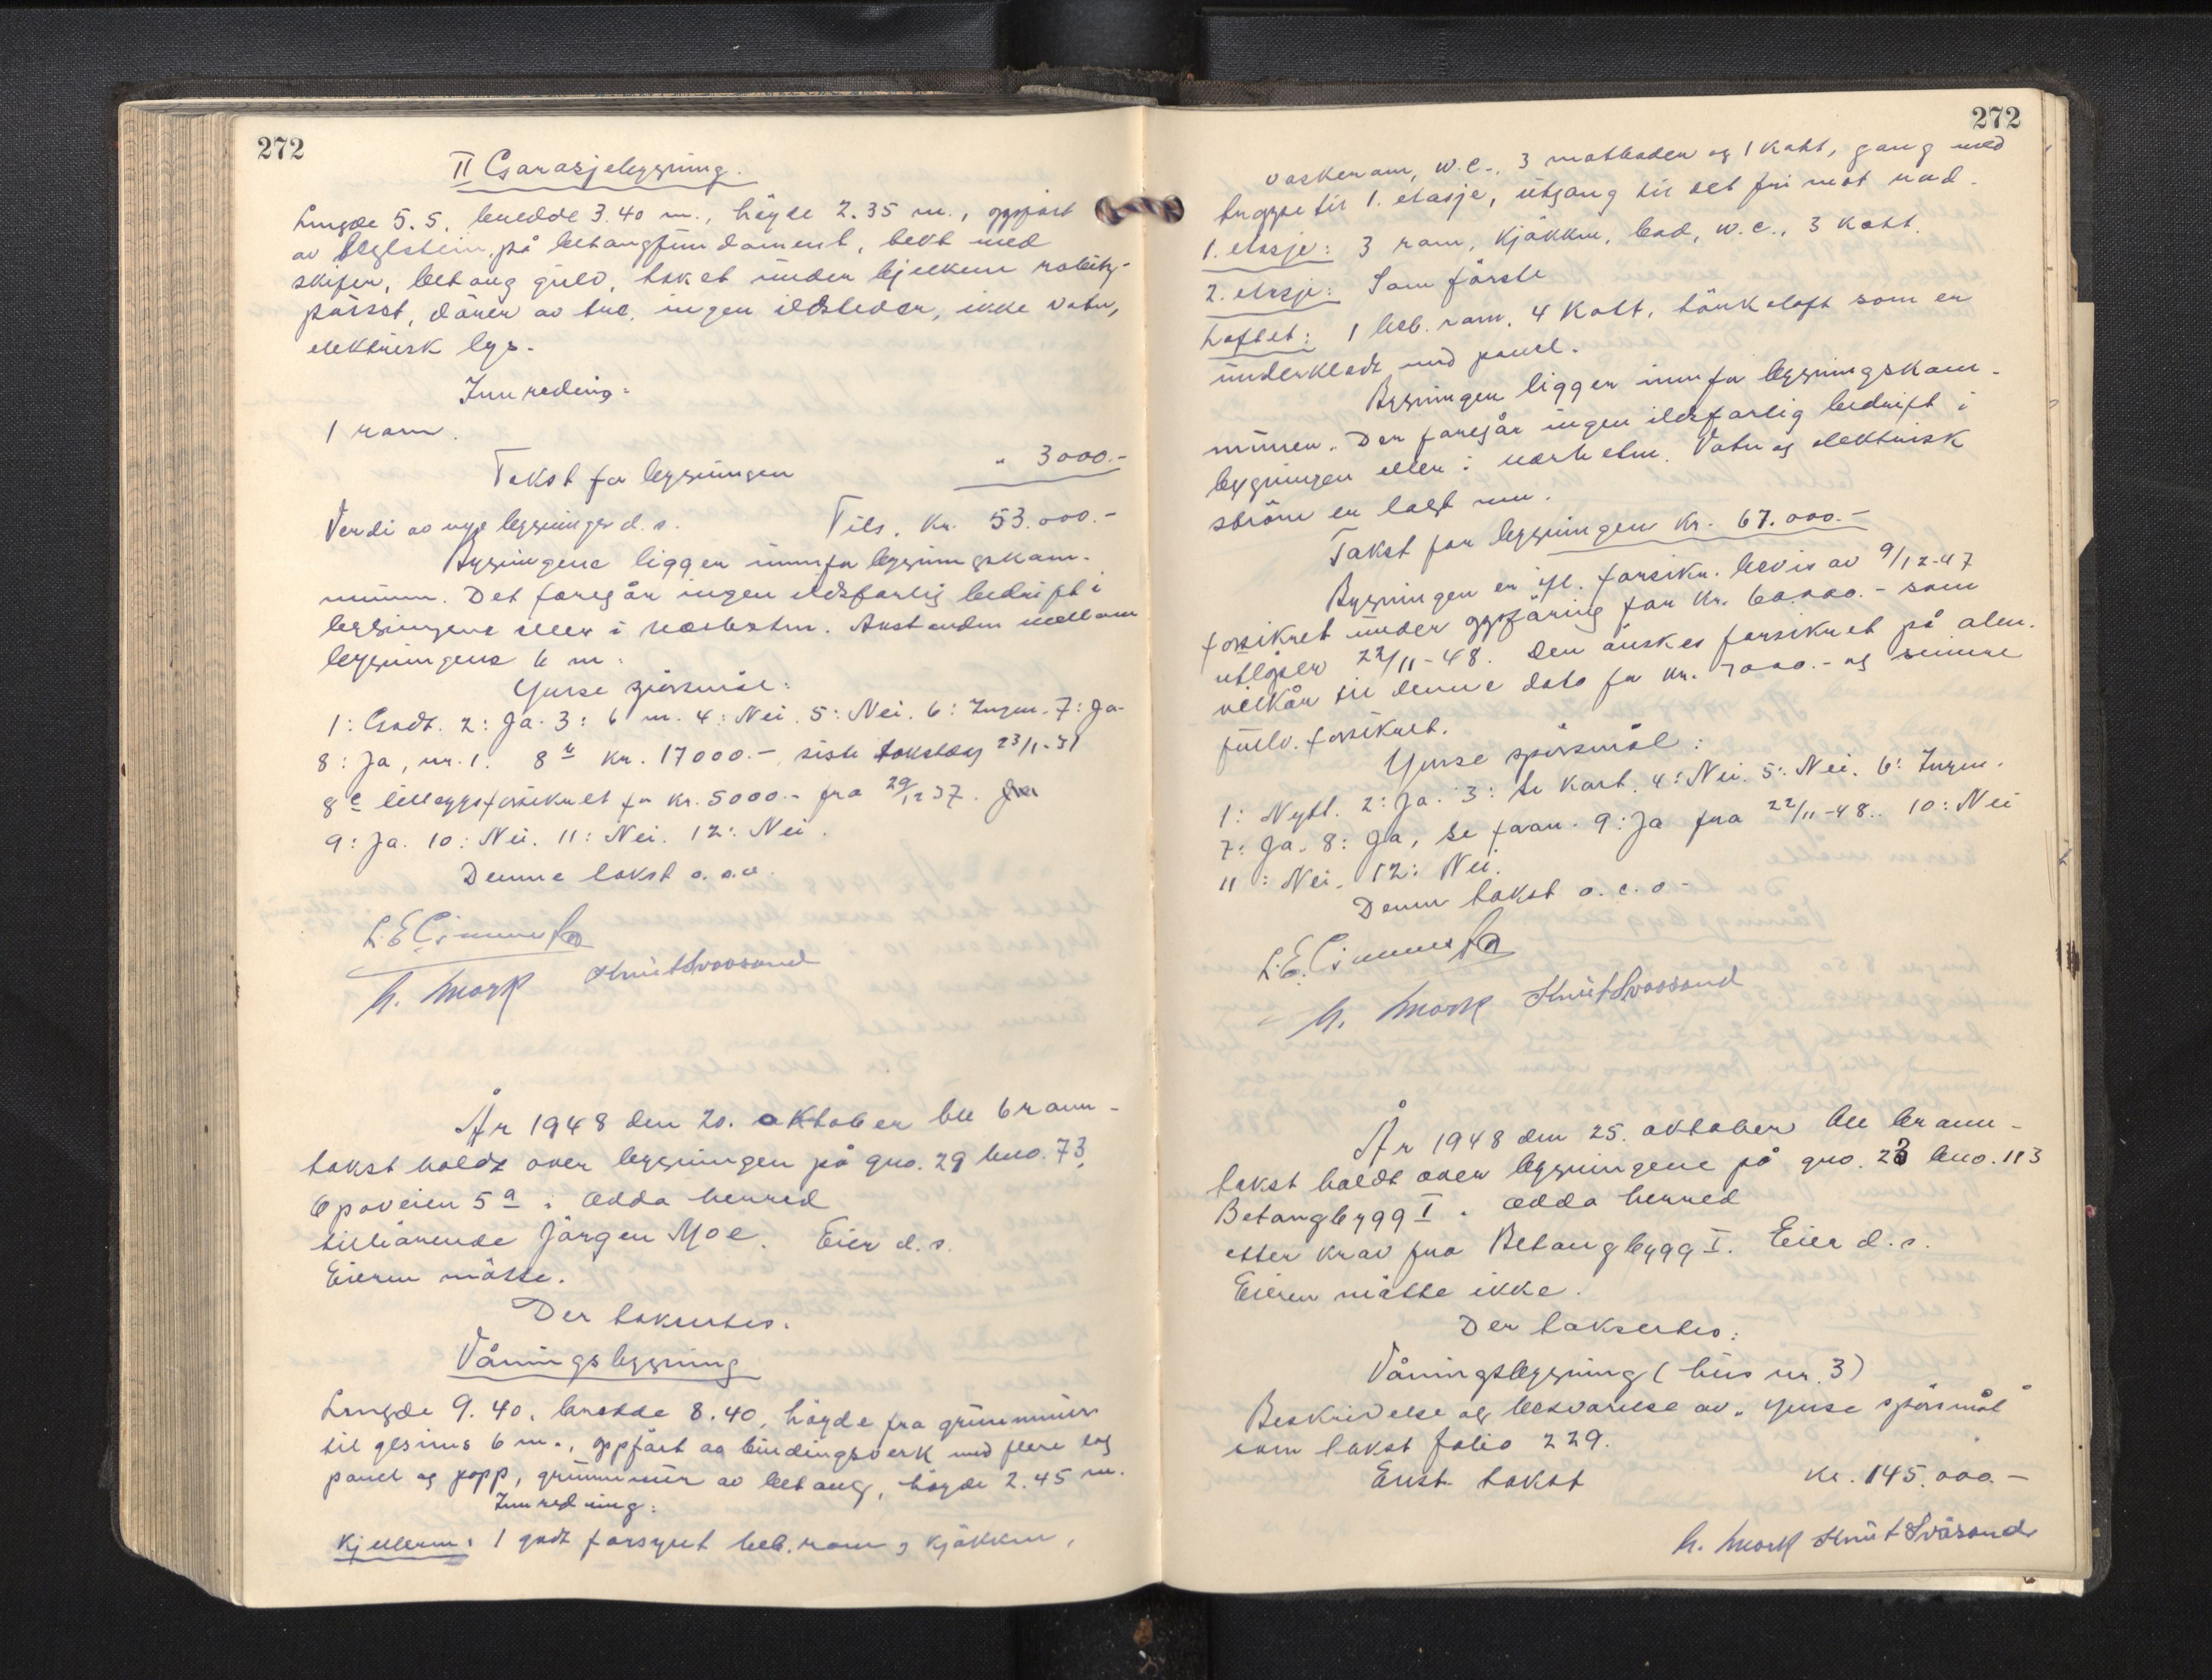 272
II Garasjebygning.
Lengde 5.5, bredde 3.40 m., höyde 2.35 m., oppfört
av teglstein, på betongfundament, tekt med
skifer, betong gulv, taket under bjelkene rabitz-
pusset, dörer av tre, ingen ildsteder, ikke vatn,
elektrisk lys.
Innreding:
1 rom.
Takst for bygningen " 3000.-
Verdi av nye bygninger d. s. Tils. kr. 53.000.-
Bygningene ligger innfor bygningskom-
munen. Det foregår ingen ildsfarlig bedrift i
bygningene eller i nærheten. Avstanden mellom
bygningene 6 m.
Ymse spörsmål:
1: Godt. 2: Ja. 3: 6 m. 4: Nei. 5: Nei. 6: Ingen. 7: Ja.
8: Ja, nr. 1. kr. 17000.-, siste takstdag 23/1-31
8c tilleggsforsikret for kr. 5000.- fra 29/12 37.
9: Ja. 10: Nei. 11: Nei. 12: Nei.
Denne takst o. s. v.
L. E.
h. Mork Knut Svoosand
År 1948 den 20. oktober ble brann-
takst holdt over bygningen på gno. 29 bno. 73,
Opoveien 5a i Odda herred
tilhörende Jörgen Moe. Eier d. s.
Eieren mötte.
Der taksertes.
Våningsbygning
Lengde 9.40, bredde 8.40, höyde fra grunnmur
til gesims 6 m., oppfört av bindingsverk med flere lag
panel og papp, grunnmur av betong, höyde 2.45 m.
Innredning:
Kjelleren: 1 godt forsynt beb. rom, kjökken,
272
vaskerom, w.c., 3 matboder og 1 kott, gang med
trappe til 1. etasje, utgang til det fri mot nord.
1. etasje: 3 rom, kjökken, bad, w.c., 3 kott.
2. etasje: Som förste
Loftet: 1 beb. rom, 4 kott, törkeloft som er
underkledt med panel.
Bygningen ligger innfor bygningskom-
munen. Der foregår ingen ildsfarlig bedrift i
bygningen eller i nærheten. Vatn og elektrisk
ström er lagt inn.
Takst for bygningen kr. 67.000.-
Bygningen er ifl. forsikr. bevis av 9/12-47
forsikret under oppföring for kr. 60.000.- som
utlöper 22/11-48. Den önskes forsikret på alm.
vilkår til denne dato for kr. 7000.- og
fullv. forsikret.
Ymse spörsmål:
1: Nytt. 2: Ja. 3: Se kart. 4: Nei. 5: Nei. 6: Ingen.
7: Ja. 8: Ja, se foran. 9: Ja fra 22/11-48. 10: Nei
11: Nei. 12: Nei.
Denne takst o. s. v.
L. E.
h. Mork Knut Svoosand
År 1948 den 25. oktober ble brann-
takst holdt over bygningene på gno. 23 bno. 113
Betongbygg I i Odda herred
etter krav fra Betongbygg I. Eier d. s.
Eieren mötte ikke.
Der taksertes:
Våningsbygning (hus nr. 3)
Beskrivelse og besvarelse av ymse spörsmål
som takst folio 229.
Enst. takst kr. 145.000.-
h. Mork Knut Svåsand